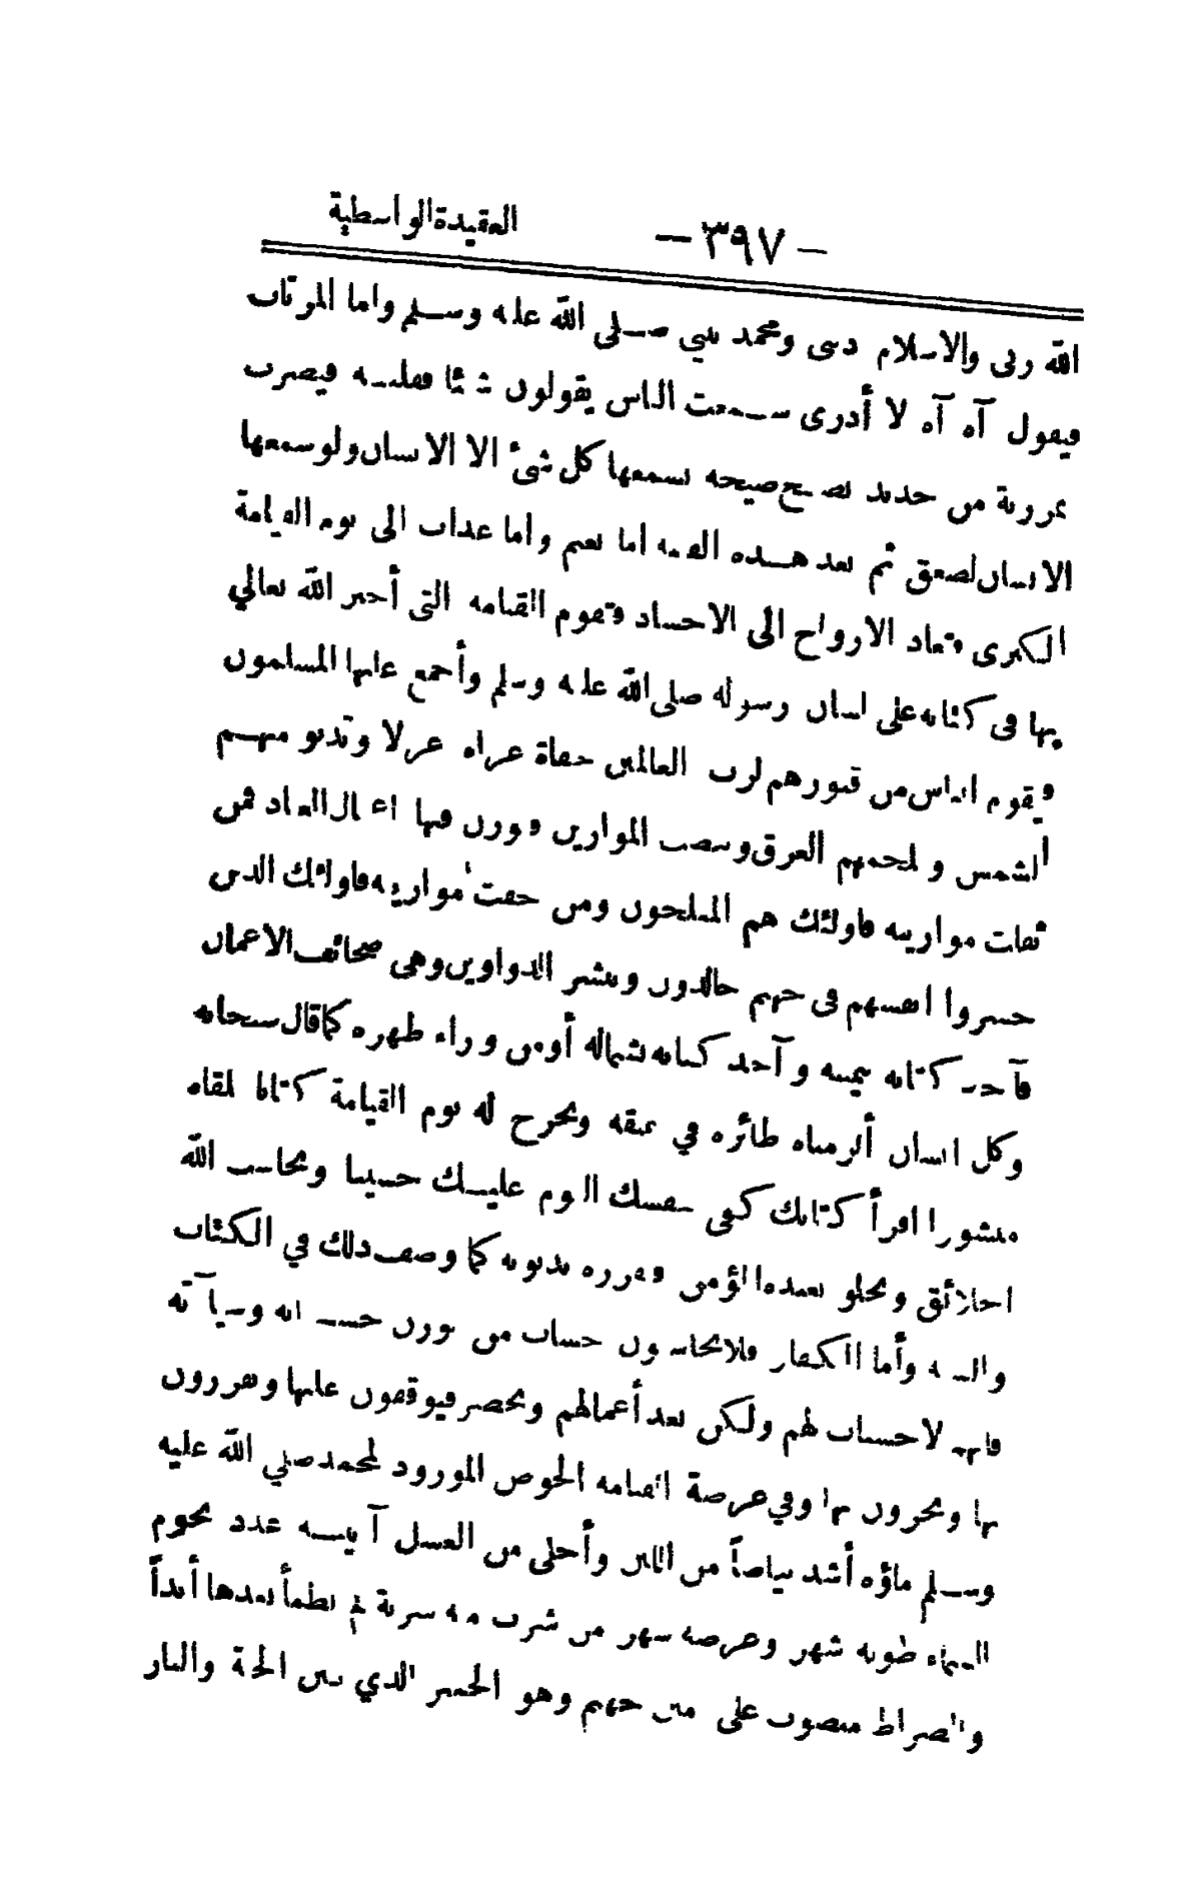 العقيدة الواسطية
— ٣٩٧ —
الله ربى والاسلام دينى ومحمد نبيي صلى الله عليه وسلم واما المرتاب
فيقول آه آه لا أدرى سمعت الناس يقولون شيئا فقلته فيضرب
بمرزبة من حديد فيصيح صيحة يسمعها كل شئ الا الانسان ولو سمعها
الانسان لصعق ثم بعد هذه الفتنة اما نعيم واما عذاب الى يوم القيامة
الكبرى فتعاد الارواح الى الاجساد وتقوم القيامة التى أخبر الله تعالي
بها فى كتابه على لسان رسوله صلى الله عليه وسلم وأجمع عليها المسلمون
فيقوم الناس من قبورهم لرب العالمين حفاة عراة غرلا وتدنو منهم
الشمس ويلجمهم العرق وتنصب الموازين فيوزن فيها اعمال العباد فمن
ثقلت موازينه فاولئك هم المفلحون ومن خفت موازينه فاولئك الذين
خسروا انفسهم فى جهنم خالدون وتنشر الدواوين وهى صحائف الاعمال
فآخذ كتابه بيمينه وآخذ كتابه بشماله أو من وراء ظهره كما قال سبحانه
وكل انسان ألزمناه طائره في عنقه ونخرج له يوم القيامة كتابا يلقاه
منشورا اقرأ كتابك كفى بنفسك اليوم عليك حسيبا ويحاسب الله
الخلائق ويخلو بعبده المؤمن فيقرره بذنوبه كما وصف ذلك في الكتاب
والسنة وأما الكفار فلا يحاسبون حساب من توزن حسناته وسيآته
فانهم لا حساب لهم ولكن تعد أعمالهم وتحصر فيوقفون عليها ويقررون
بها ويجزون بها وفي عرصة القيامة الحوض المورود لمحمد صلي الله عليه
وسلم ماؤه أشد بياضاً من اللبن وأحلى من العسل آنيته عدد نجوم
السماء طوله شهر وعرضه شهر من شرب منه شربة لم يظمأ بعدها أبداً
والصراط منصوب على متن جهنم وهو الجسر الذي بين الجنة والنار